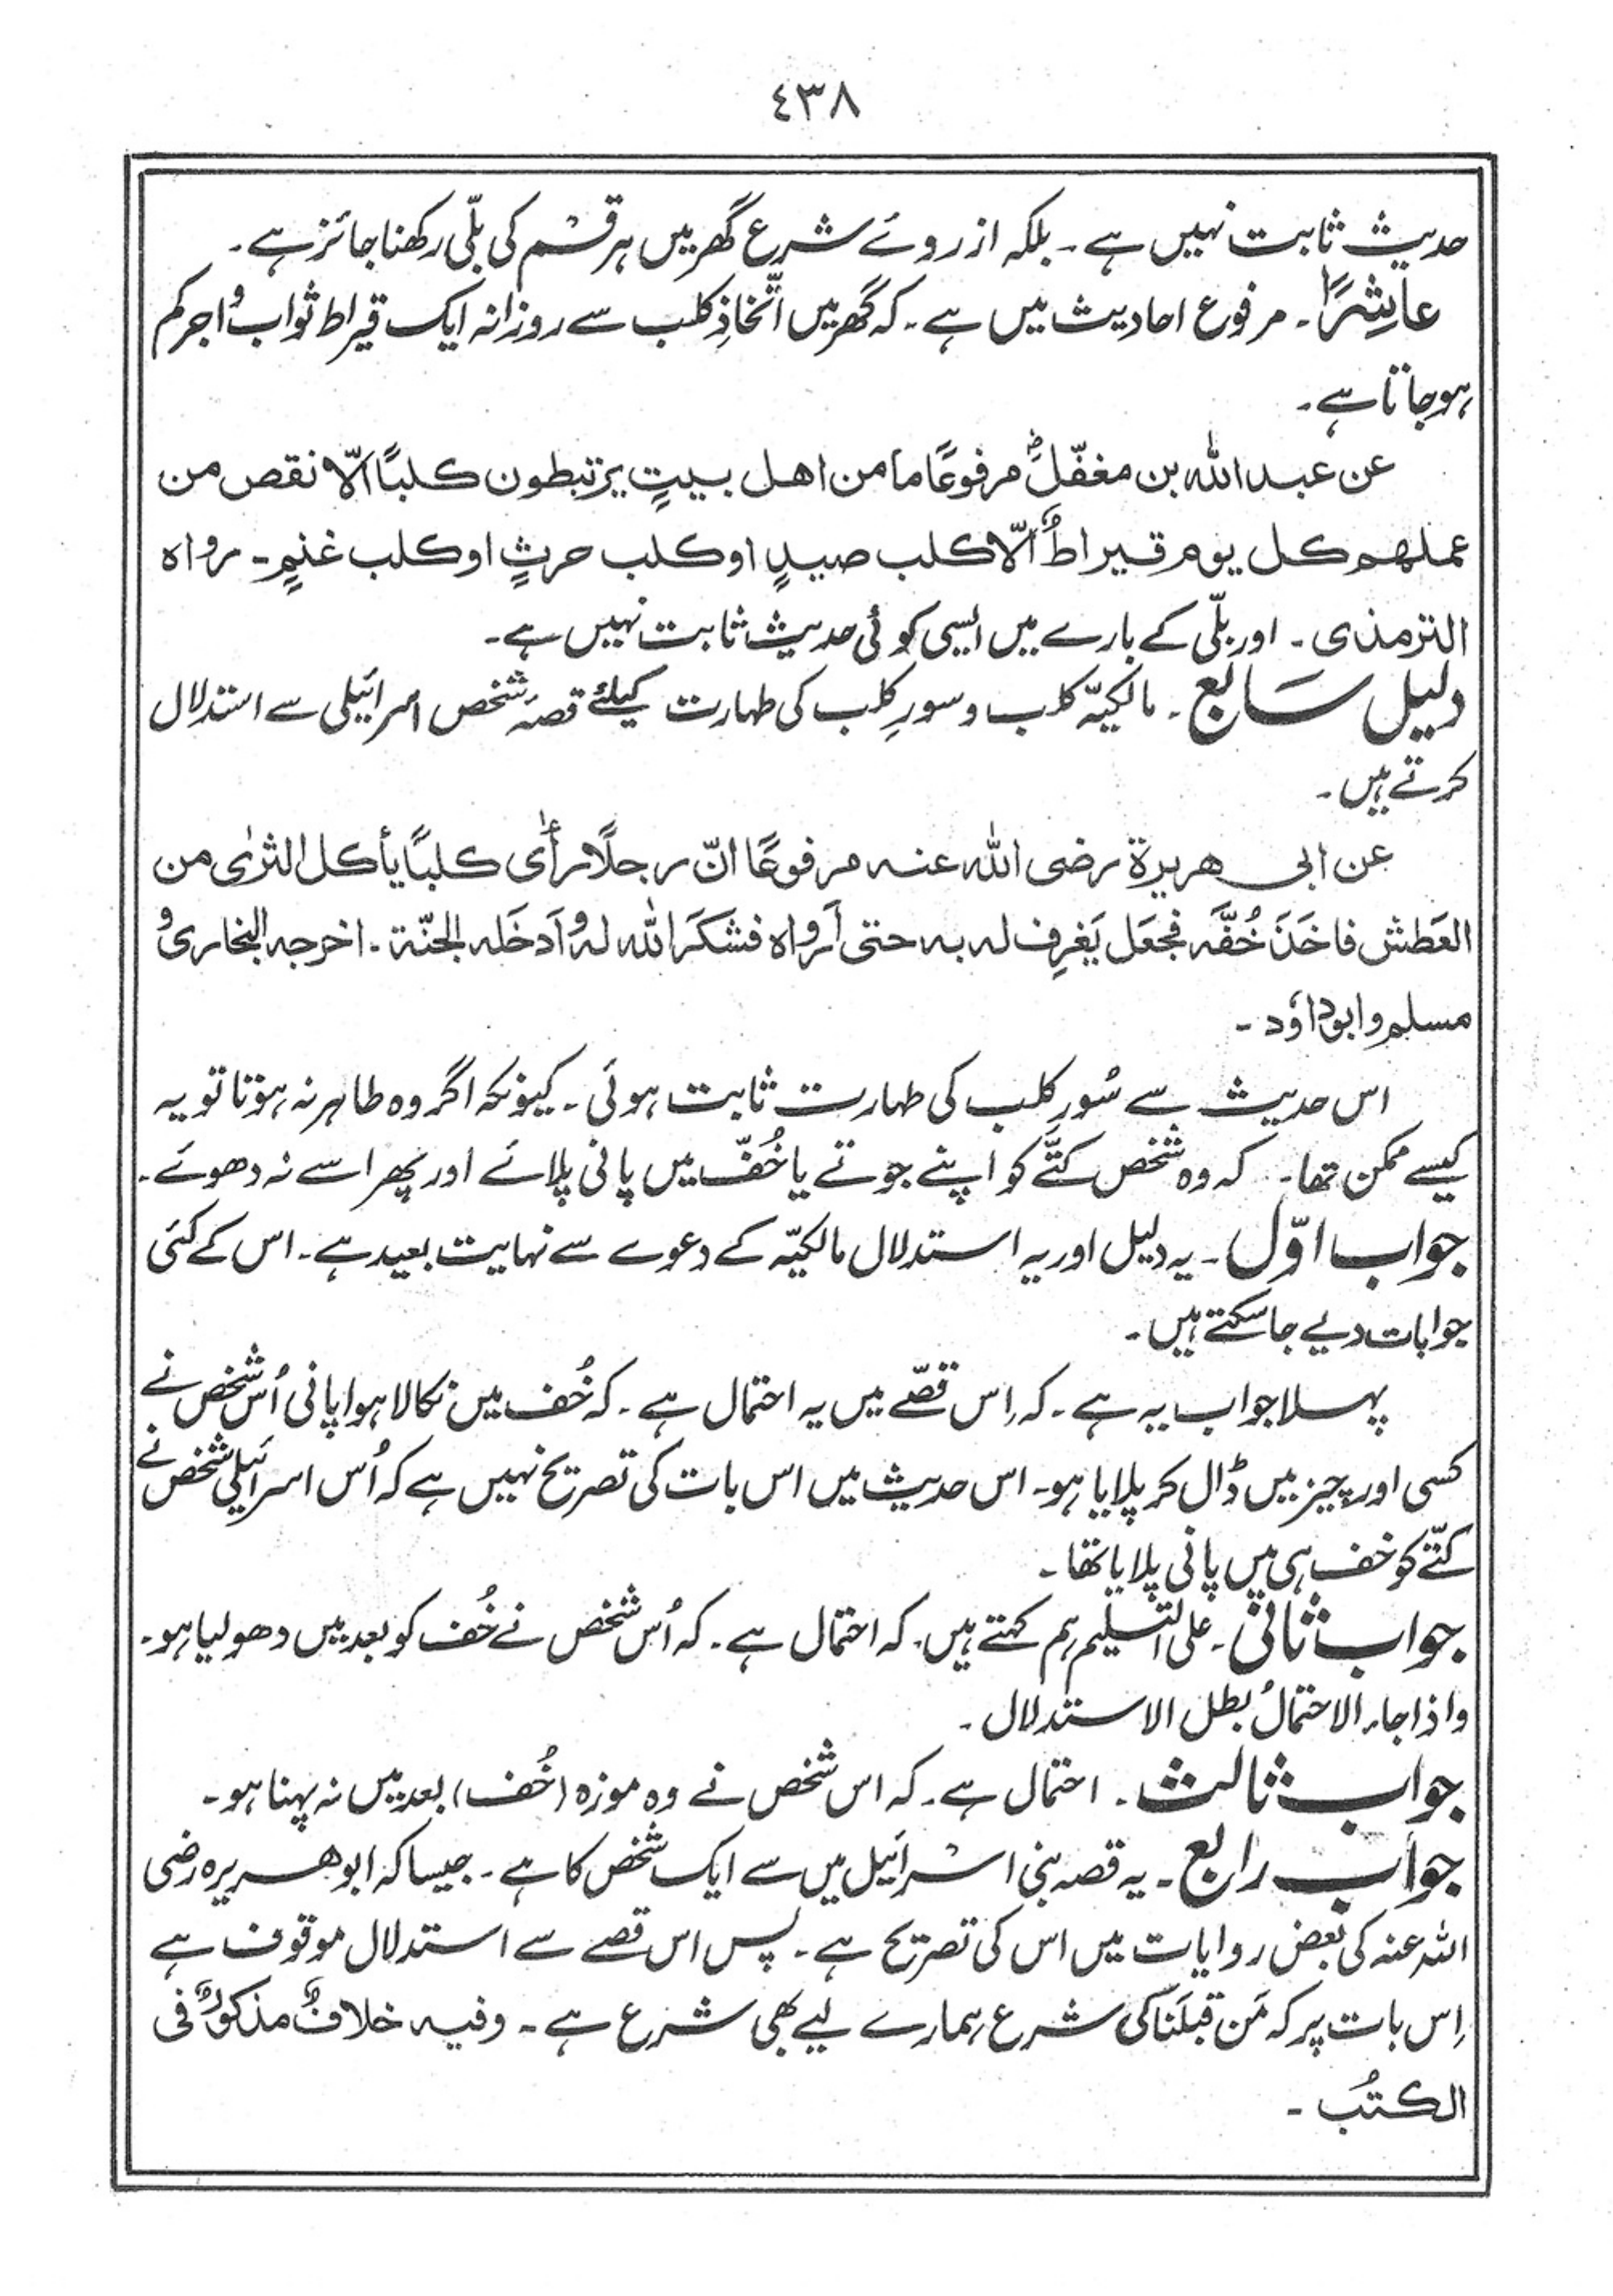 ٤٣٨
حدیث ثابت نہیں ہے ۔ بلکہ از روئے شرع گھر میں ہر قسم کی بلّی رکھنا جائز ہے ۔
عاشِرًا ۔ مرفوع احادیث میں ہے ۔ کہ گھر میں اتّخاذِ کلب سے روزانہ ایک قیراط ثواب و اجر کم
ہو جاتا ہے ۔
عن عبد اللہ بن مغفّلؓ مرفوعًا ما من اھل بیتٍ یرتبطون کلبًا الّا نقص من
عملھم کل یوم قیراطٌ الّا کلب صیدٍ او کلب حرثٍ او کلب غنمٍ ۔ رواہ
الترمذی ۔ اور بلّی کے بارے میں ایسی کوئی حدیث ثابت نہیں ہے ۔
دلیل سَابع ۔ مالکیّہ کلب و سورِ کلب کی طہارت کیلئے قصۂ شخص اسرائیلی سے استدلال
کرتے ہیں ۔
عن ابی ھریرۃ رضی اللہ عنہ مرفوعًا انّ رجلًا رأٰی کلبًا یأکل الثرٰی من
العَطش فاخَذَ خُفَّہ فجعَل یَغرِف لہ بہ حتی اَرواہ فشکَرَ اللہ لہ وَاَدخَلہ الجنّۃ ۔ اخرجہ البخاری و
مسلم و ابوداؤد ۔
اس حدیث سے سُورِ کلب کی طہارت ثابت ہوئی ۔ کیونکہ اگر وہ طاہر نہ ہوتا تو یہ
کیسے ممکن تھا ۔ کہ وہ شخص کتّے کو اپنے جوتے یا خُفّ میں پانی پلائے اور پھر اسے نہ دھوئے ۔
جواب اوّل ۔ یہ دلیل اور یہ استدلال مالکیّہ کے دعوے سے نہایت بعید ہے ۔ اس کے کئی
جوابات دیے جا سکتے ہیں ۔
پہلا جواب یہ ہے ۔ کہ اِس قصّے میں یہ احتمال ہے ۔ کہ خُف میں نکالا ہوا پانی اُس شخص نے
کسی اور چیز میں ڈال کر پلایا ہو ۔ اس حدیث میں اس بات کی تصریح نہیں ہے کہ اُس اسرائیلی شخص نے
کتّے کو خف ہی میں پانی پلایا تھا ۔
جواب ثانی ۔ علی التسلیم ہم کہتے ہیں ۔ کہ احتمال ہے ۔ کہ اُس شخص نے خُف کو بعد میں دھو لیا ہو ۔
واذا جاء الاحتمالُ بطل الاستدلال ۔
جواب ثالث ۔ احتمال ہے ۔ کہ اس شخص نے وہ موزہ (خُف) بعد میں نہ پہنا ہو ۔
جواب رابع ۔ یہ قصہ بنی اسرائیل میں سے ایک شخص کا ہے ۔ جیسا کہ ابوھریرہ رضی
اللہ عنہ کی بعض روایات میں اس کی تصریح ہے ۔ پس اس قصے سے استدلال موقوف ہے
اِس بات پر کہ مَن قبلَنا کی شرع ہمارے لیے بھی شرع ہے ۔ وفیہ خلافٌ مذکورٌ فی
الکتُب ۔